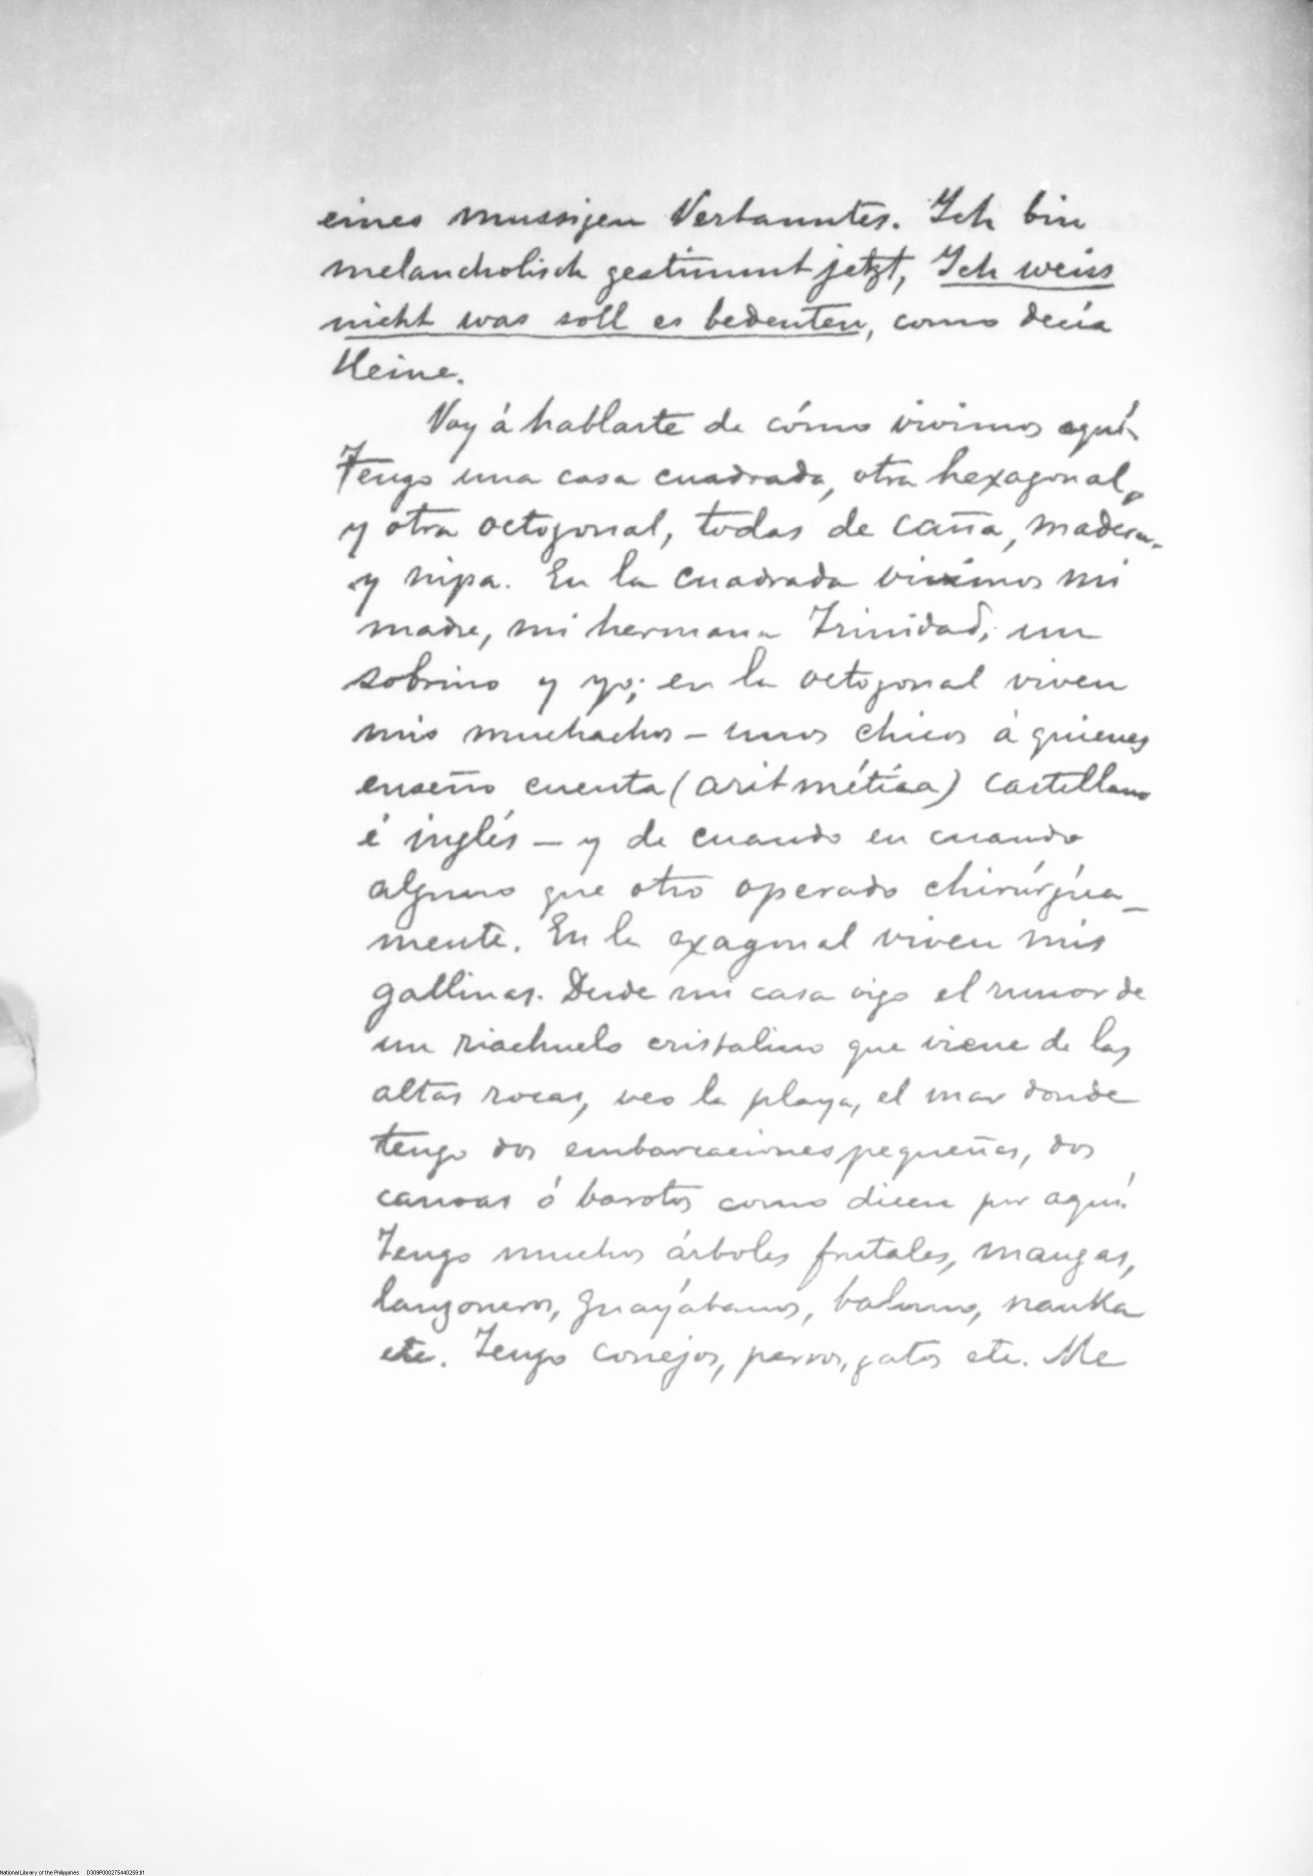 eines mussigen Verbanntes. Ich bin
melancholisch gestimmt jetzt, Ich weiss
nicht was soll es bedeuten, como decía
Heine.
Voy á hablarte de cómo vivimos aquí.
Tengo una casa cuadrada, otra hexagonal,
y otra octogonal, todas de caña, madera
y nipa. En la cuadrada vivimos mi
madre, mi hermana Trinidad, un
sobrino y yo; en la octogonal viven
mis muchachos – unos chicos á quienes
enseño cuenta (aritmética) castellano
é inglés – y de cuando en cuando
alguno que otro operado chirúrgica-
mente. En la exagonal viven mis
gallinas. Desde mi casa oigo el rumor de
un riachuelo cristalino que viene de las
altas rocas, veo la playa, el mar donde
tengo dos embarcaciones pequeñas, dos
canoas ó barotos como dicen por aquí.
Tengo muchos árboles frutales, mangas,
lanzoneros, guayabanos, baluno, nanka
etc. Tengo conejos, perros, gatos etc. Me
National Library of the Philippines